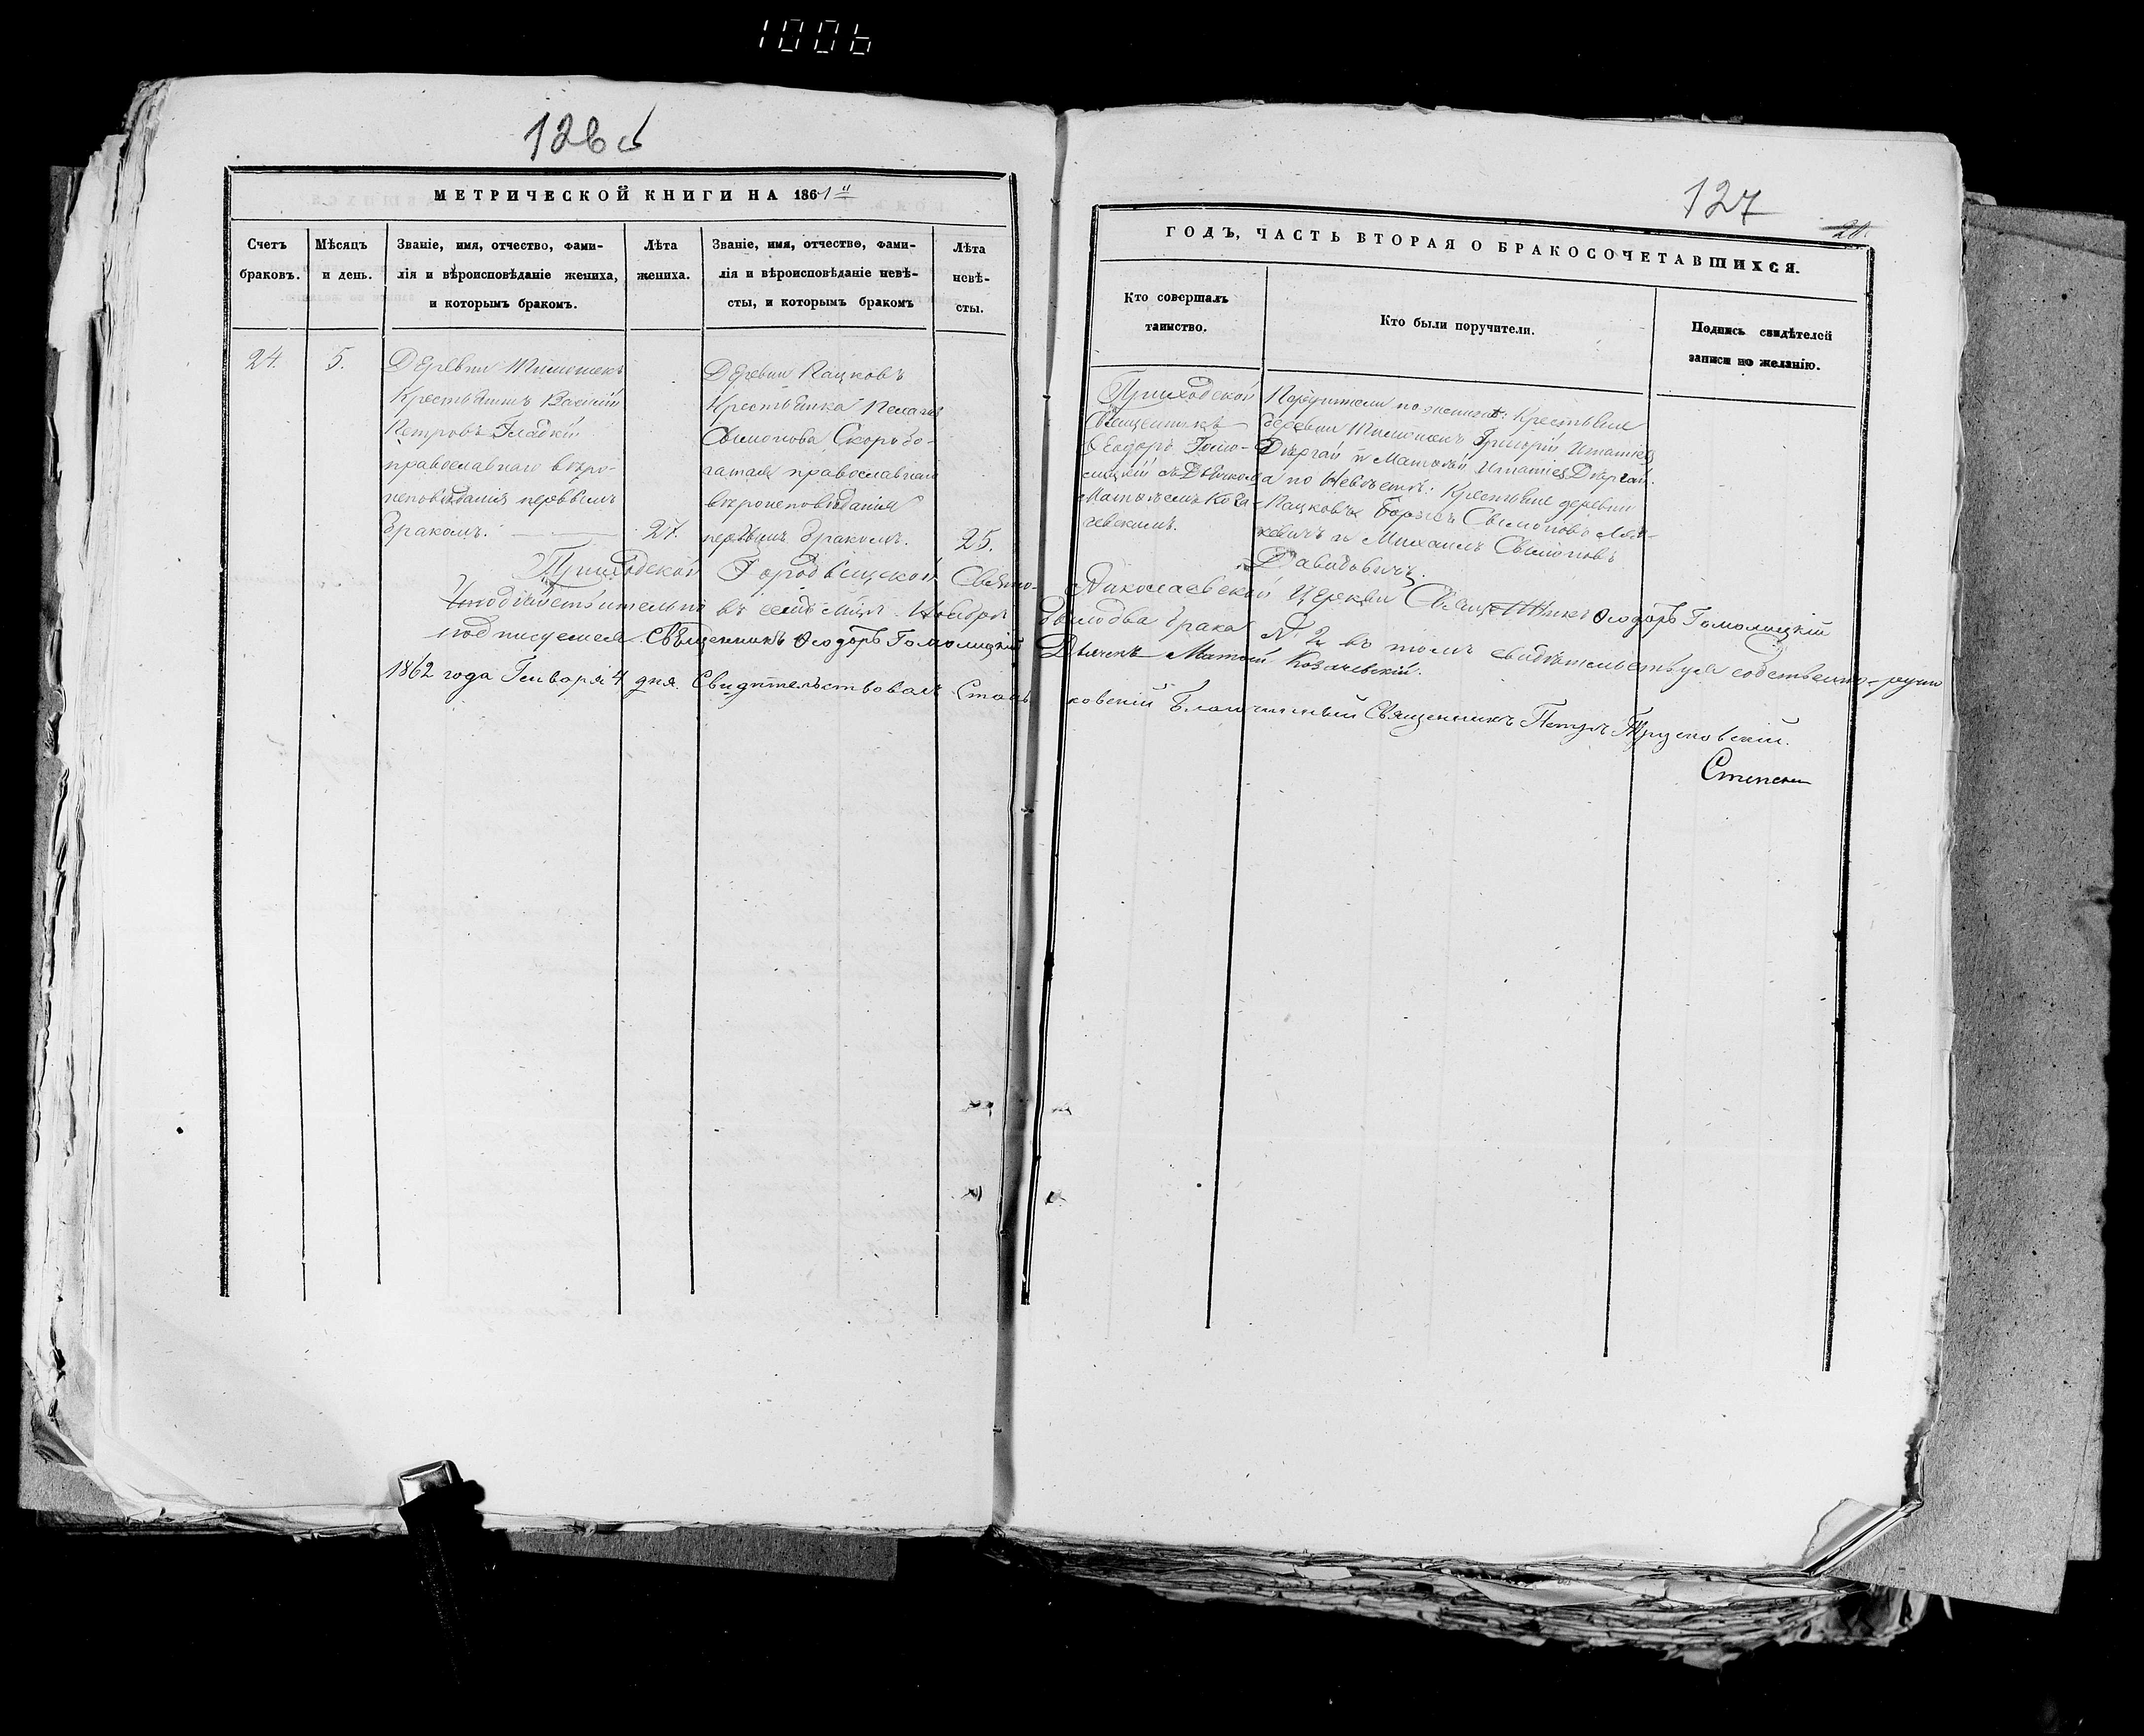 1006
126 об
МЕТРИЧЕСКОЙ КНИГИ НА 1861й
Счетъ браковъ.
Мѣсяцъ и день.
Званіе, имя, отчество, фами-
лія и вѣроисповѣданіе жениха,
и которымъ бракомъ.
Лѣта
жениха.
Званіе, имя, отчество, фами-
лія и вѣроисповѣданіе невѣ-
сты, и которымъ бракомъ
Лѣта
невѣ-
сты.
24.
5.
Деревни
Крестьянинъ Василій
Петровъ Гладкій
православнаго вѣро-
исповѣданія первымъ
бракомъ.
27.
Деревни Пацковъ
Крестьянка Пелагія
Сѵмонова Скоробо-
гатая православнаго
вѣроисповѣданія
первымъ бракомъ.
25.
127
20.
ГОДЪ, ЧАСТЬ ВТОРАЯ О БРАКОСОЧЕТАВШИХСЯ.
Кто совершалъ
таинство.
Кто были поручители.
Подпись свидѣтелей
записи по желанію.
Приходской
Священникъ
Ѳеодоръ Гомо-
лицкій съ Дьячкомъ
Матѳеемъ Коза-
чевскимъ.
Поручители по женихѣ: Крестьяне
деревни Григорій Игнатіевъ
и Матѳей Игнатіевъ
по Невѣстѣ: Крестьяне деревни
Пацковъ Борисъ Сѵмоновъ
и Михаилъ Сѵмоновъ
Давидовичъ.
Приходской Городищской Свято-Николаевской Церкви Священникъ Ѳеодоръ Гомолицкій
Что дѣйствительно въ семъ мѣсяцѣ Ноябрѣ было два брака № 2 въ томъ свидѣтельствуя собственно-ручно
подписуемся Священникъ Ѳеодоръ Гомолицкій Дьячекъ Матѳей Козачевскій.
1862 года Генваря 4 дня. Свидѣтельствовалъ Станьковскій Благочинный Священникъ Петръ